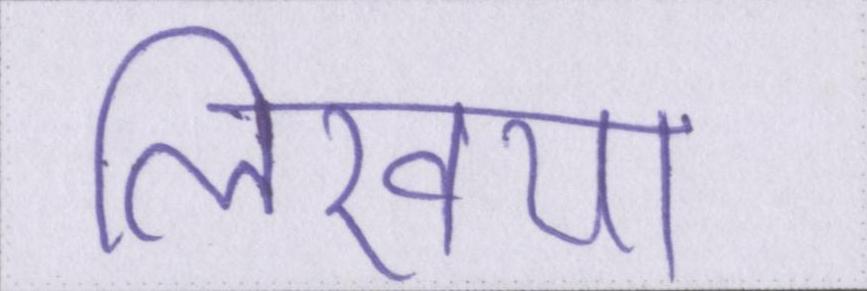 लिखया